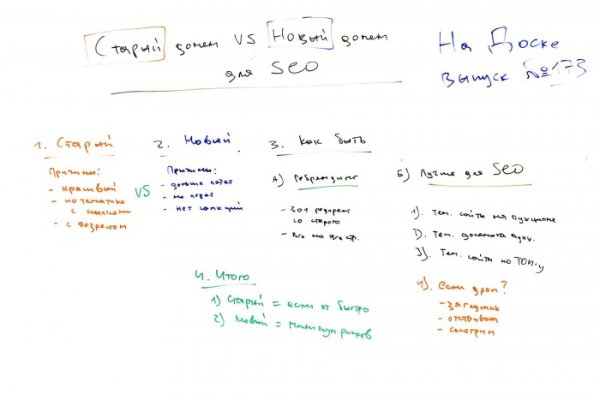 Старый домен VS Новый домен
для SEO
На Доске
выпуск №173
1. Старый
Причины:
- красивый
- по тематике
с ссылками
- с возрастом
VS
2. Новый
Причины:
- дольше
- нет санкций
3. Как быть
А) Ребрендинг
- 301 редирект
со старого
- Все на все стр.
Б) Лучше для SEO
1). Тем. сайты на аукционе
2). Тем. домена аукц.
3). Тем. сайты по ТОП-у
4). Если дроп?
- заглушка
- отстаиваем
- смотрим
4. Итого
1) Старый = если от быстро
2) Новый = минимум рисков